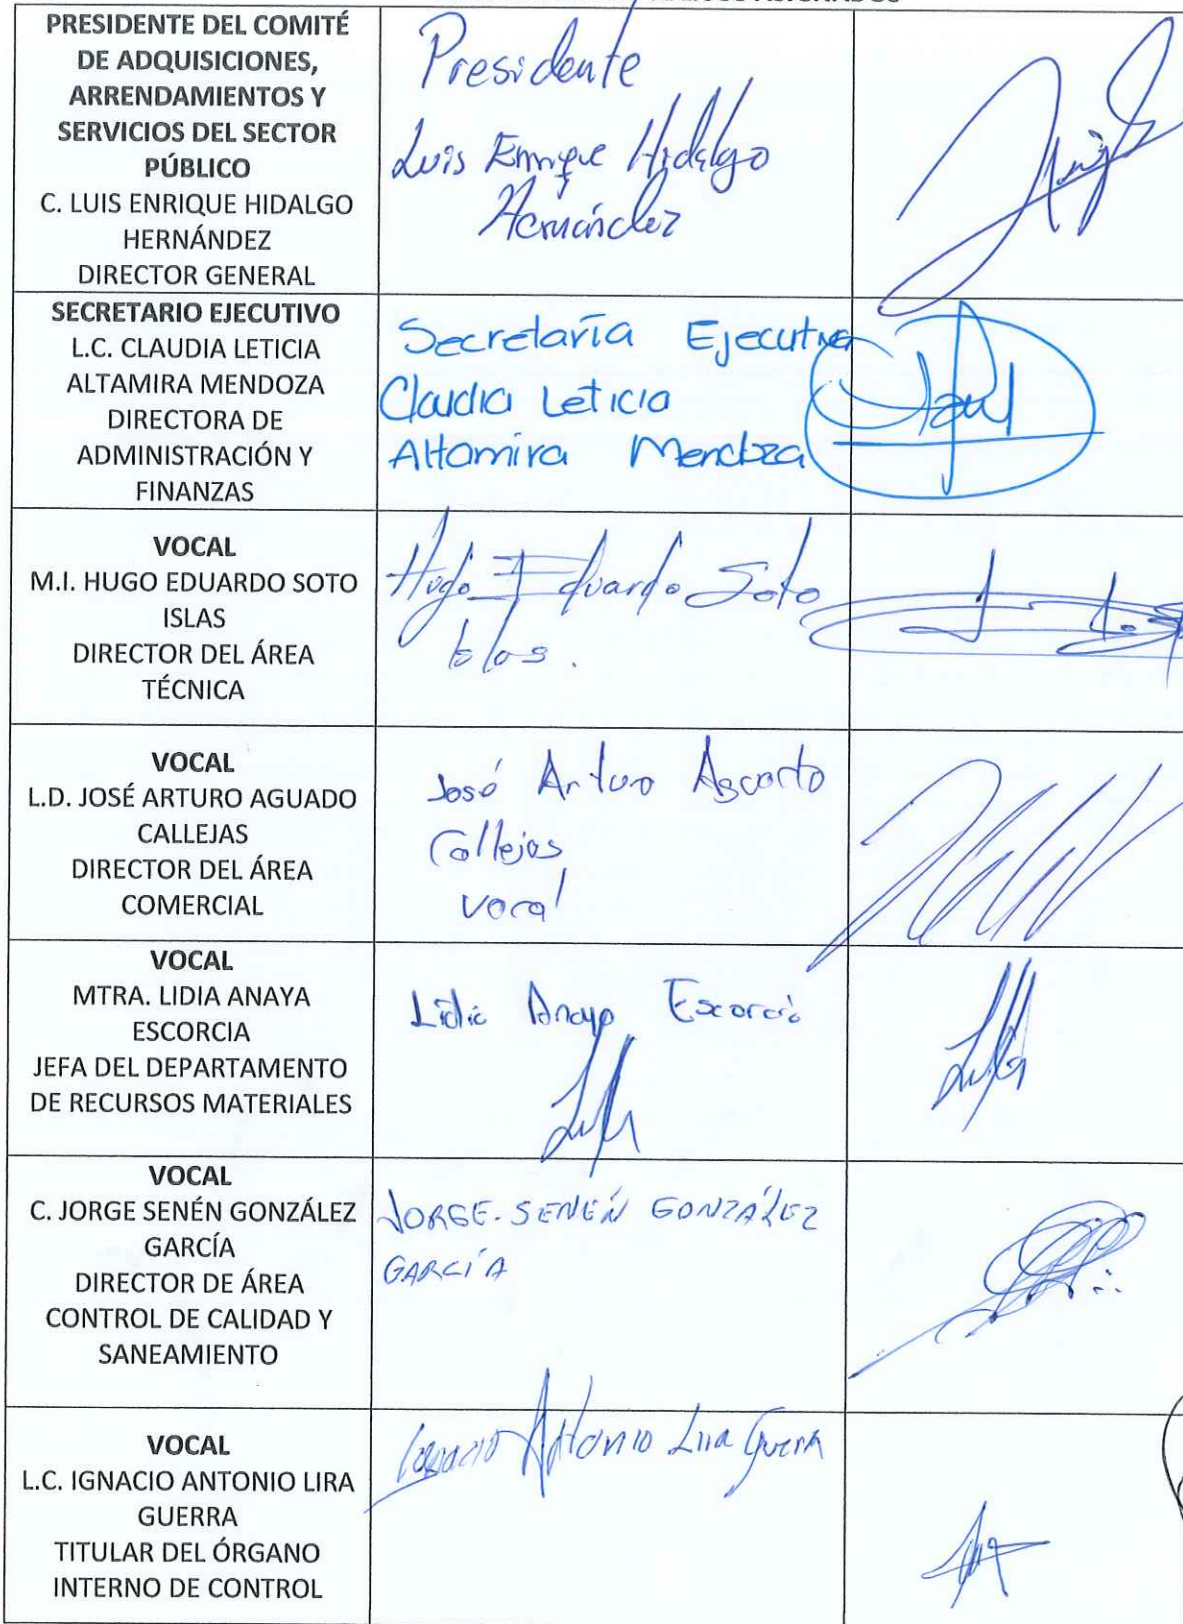 PRESIDENTE DEL COMITÉ
DE ADQUISICIONES,
ARRENDAMIENTOS Y
SERVICIOS DEL SECTOR
PÚBLICO
C. LUIS ENRIQUE HIDALGO
HERNÁNDEZ
DIRECTOR GENERAL
Presidente
Luis Enrique Hidalgo
Hernández
SECRETARIO EJECUTIVO
L.C. CLAUDIA LETICIA
ALTAMIRA MENDOZA
DIRECTORA DE
ADMINISTRACIÓN Y
FINANZAS
Secretaría Ejecutiva
Claudia Leticia
Altamira Mendoza
VOCAL
M.I. HUGO EDUARDO SOTO
ISLAS
DIRECTOR DEL ÁREA
TÉCNICA
Hugo Eduardo Soto
Islas.
VOCAL
L.D. JOSÉ ARTURO AGUADO
CALLEJAS
DIRECTOR DEL ÁREA
COMERCIAL
José Arturo
Callejas
Vocal
VOCAL
MTRA. LIDIA ANAYA
ESCORCIA
JEFA DEL DEPARTAMENTO
DE RECURSOS MATERIALES
Lidia Anaya Escorcia
VOCAL
C. JORGE SENÉN GONZÁLEZ
GARCÍA
DIRECTOR DE ÁREA
CONTROL DE CALIDAD Y
SANEAMIENTO
JORGE. SENÉN GONZÁLEZ
GARCÍA
VOCAL
L.C. IGNACIO ANTONIO LIRA
GUERRA
TITULAR DEL ÓRGANO
INTERNO DE CONTROL
Ignacio Antonio Lira Guerra